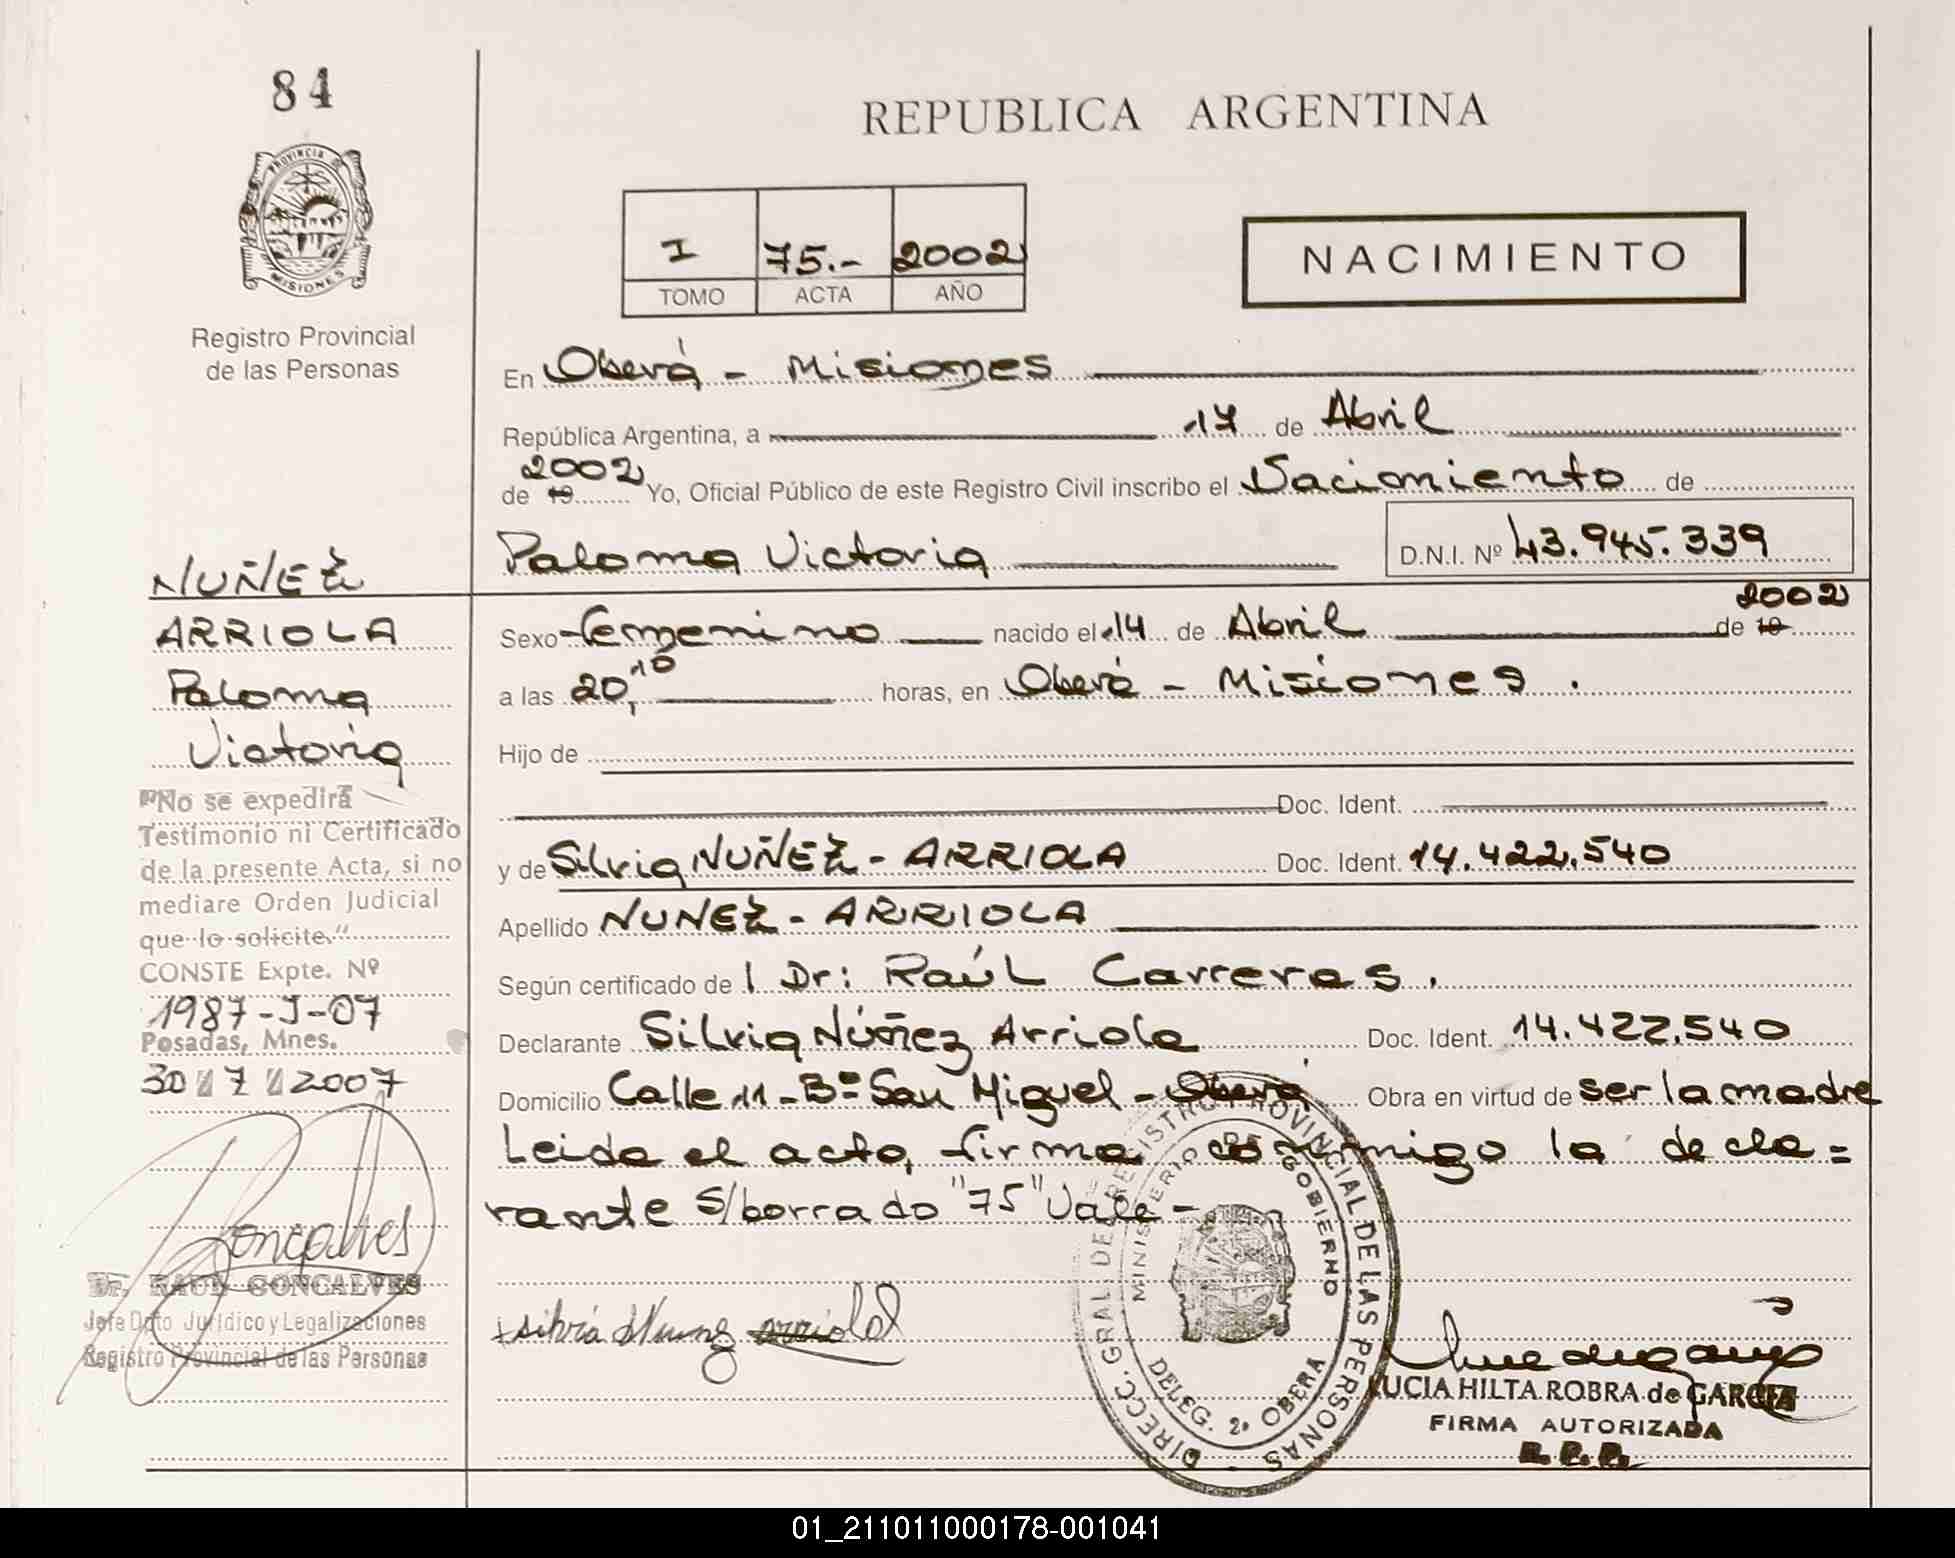 84
PROVINCIA DE
MISIONES
Registro Provincial
de las Personas
REPUBLICA ARGENTINA
I 75.- 2002
TOMO ACTA AÑO
NACIMIENTO
En Oberá - Misiones
República Argentina, a 17 de Abril
2002
de 19 Yo, Oficial Público de este Registro Civil inscribo el Nacimiento de
Paloma Victoria D.N.I. Nº 43.945.339
Sexo femenino nacido el 14 de Abril de 19 2002
a las 20,10 horas, en Oberá - Misiones.
Hijo de
Doc. Ident.
y de Silvia NUÑEZ - ARRIOLA Doc. Ident. 14.422.540
Apellido NUÑEZ - ARRIOLA
Según certificado de l Dr: Raúl Carreras.
Declarante Silvia Núñez Arriola Doc. Ident. 14.422.540
Domicilio Calle 11 - Bº San Miguel - Oberá Obra en virtud de ser la madre
Leida el acta, firma conmigo la decla=
rante S/borrado "75" Vale -
NUÑEZ
ARRIOLA
Paloma
Victoria
"No se expedirá
Testimonio ni Certificado
de la presente Acta, si no
mediare Orden Judicial
que lo solicite."
CONSTE Expte. Nº
1987-J-07
Posadas, Mnes.
30 7 2007
Goncalves
Dr. RAUL GONCALVES
Jefe Dpto Jurídico y Legalizaciones
Registro Provincial de las Personas
silvia Nuñez arriola
DIRECC. GRAL. DE REGISTRO PROVINCIAL DE LAS PERSONAS
MINISTERIO DE GOBIERNO
DELEG. 2º OBERA
LUCIA HILTA ROBRA de GARCIA
FIRMA AUTORIZADA
R. P. P.
01_211011000178-001041